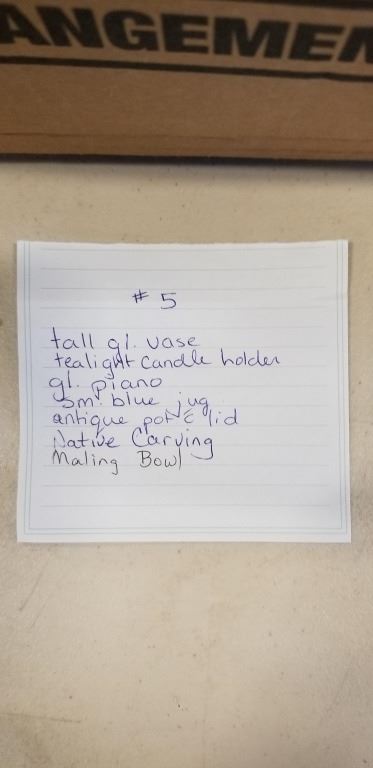 ANGEMEN
# 5
tall gl. vase
tealight candle holder
gl. piano
sm. blue jug
antique pot c̄ lid
Native Carving
Maling Bowl